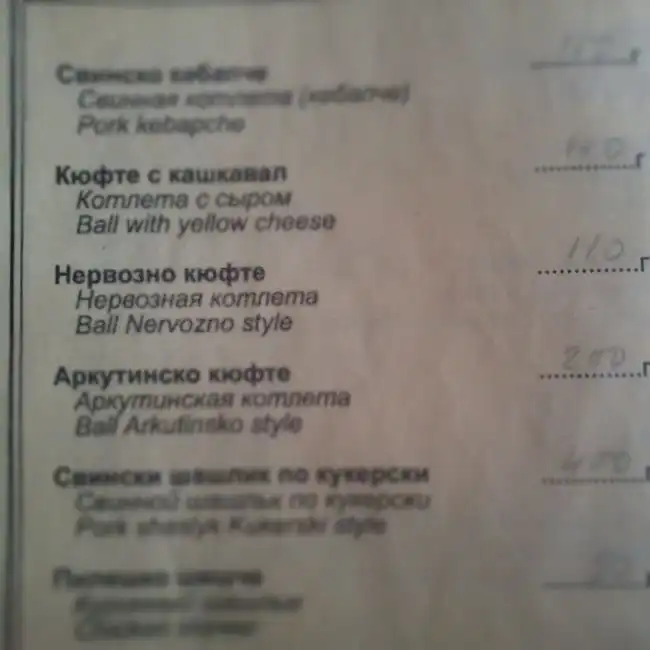 Свинско кебапче
Свинная котлета (кебапче)
Pork kebapche
Кюфте с кашкавал
г
Котлета с сыром
Ball with yellow cheese
Нервозно кюфте
110 г
Нервозная котлета
Ball Nervozno style
Аркутинско кюфте
200 г
Аркутинская котлета
Ball Arkutinsko style
Свински шашлик по кукерски
400
Свинной шашлык по кукерски
Pork shashlyk Kukerski style
Пилешко